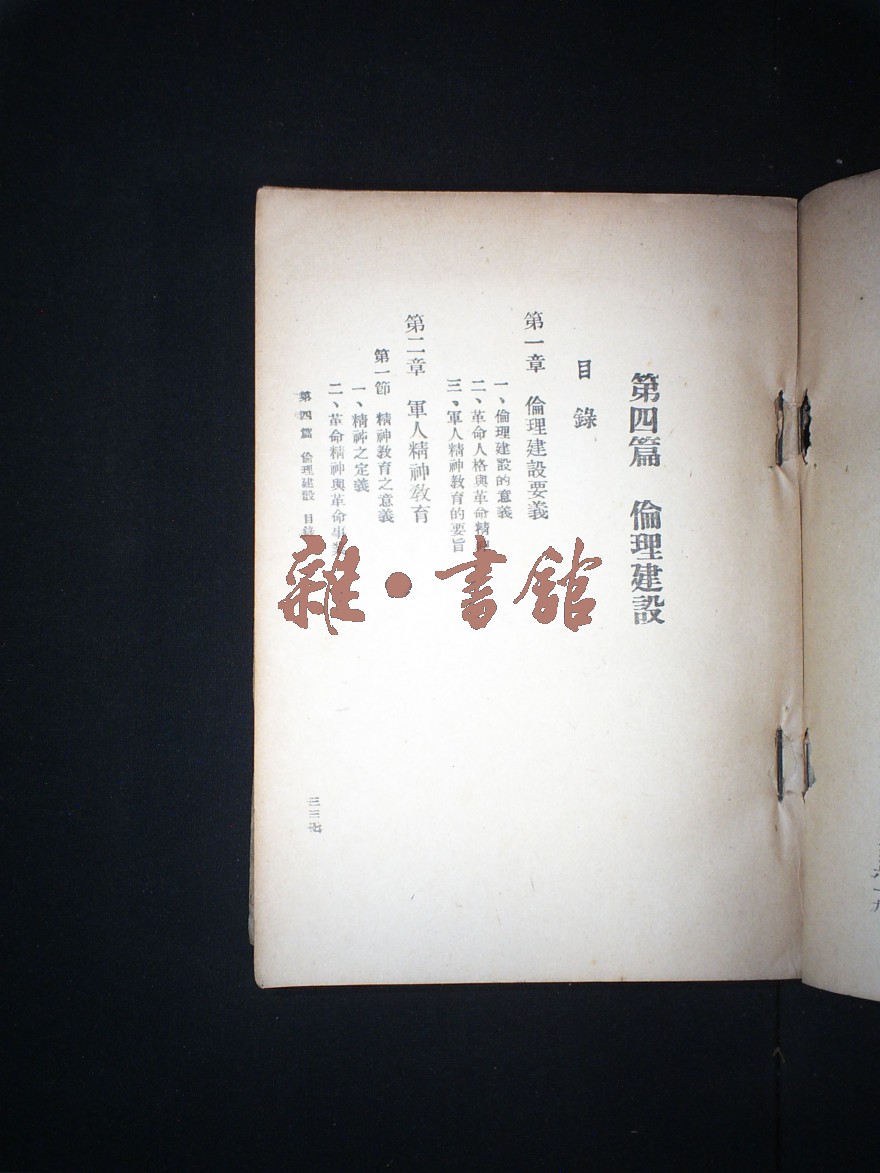 第四篇　倫理建設
目錄
第一章　倫理建設要義
一、倫理建設的意義
二、革命人格與革命精
三、軍人精神教育的要旨
第二章　軍人精神教育
第一節　精神教育之意義
一、精神之定義
二、革命精神與革命事
第四篇　倫理建設　目錄
三三七
雜・書館